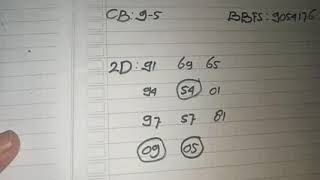 CB: 9-5 BBFS: 9054176
2D: 91 69 65
94 54 01
97 57 81
09 05